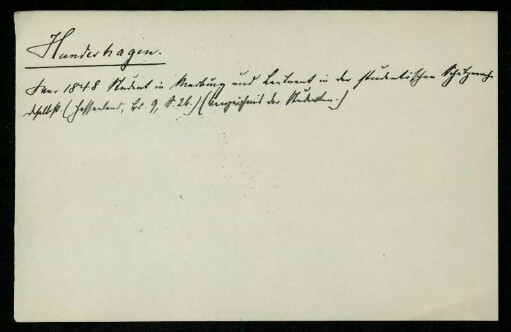 Hundeshagen.
War 1848 Student in Marburg und Leutnant in der studentischen
daselbst (Hessenland, Bd. 9, S. 26.) (Verzeichnis der Studenten.)